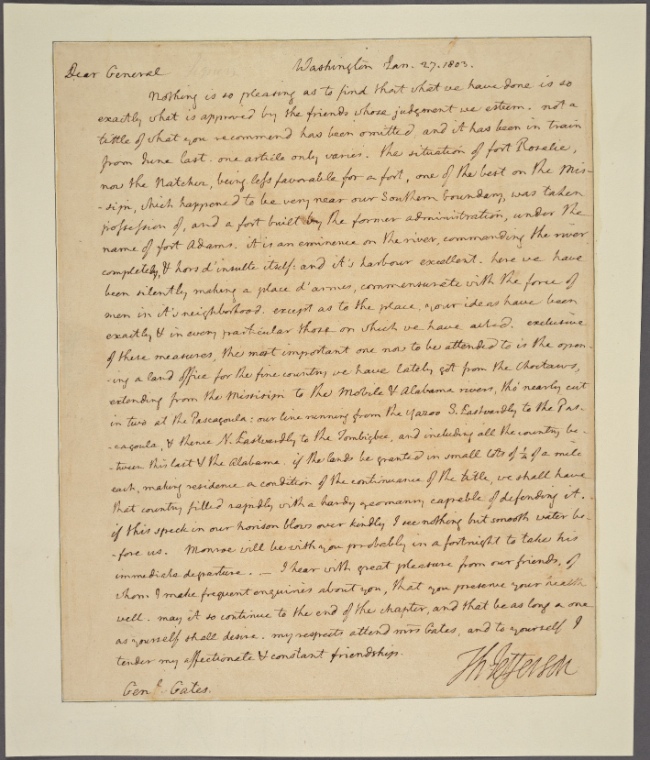 Dear General Washington Jan. 27. 1803.
Nothing is so pleasing as to find that what we have done is so
exactly what is approved by the friends whose judgment we esteem. not a
tittle of what you recommend has been omitted, and it has been in train
from June last. one article only varies. the situation of fort Rosalie,
now the Natchez, being less favorable for a fort, one of the best on the Mis-
-sipi, which happened to be very near our Southern boundary, was taken
possession of, and a fort built by the former administration, under the
name of fort Adams. it is an eminence on the river, commanding the river
completely, & hors d'insulte itself: and it's harbour excellent. here we have
been silently making a place d'armes, commensurate with the force of
men in it's neighborhood. except as to the place, your ideas have been
exactly & in every particular those on which we have acted. exclusive
of these measures, the most important one now to be attended to is the open-
-ing a land office for the fine country we have lately got from the Choctaws,
extending from the Missisipi to the Mobile & Alabama rivers, tho' nearly cut
in two at the Pascagoula: our line running from the Yazoo S. Eastwardly to the Pas-
-cagoula, & thence N. Eastwardly to the Tombigbee, and including all the country be-
-tween this last & the Alabama. if the lands be granted in small lots of ¼ of a mile
each, making residence a condition of the continuance of the title, we shall have
that country filled rapidly with a hardy yeomanry capable of defending it.
if this speck in our horison blows over kindly I see nothing but smooth water be-
-fore us. Monroe will be with you probably in a fortnight to take his
immediate departure. — I hear with great pleasure from our friends, of
whom I make frequent enquiries about you, that you preserve your health
well. may it so continue to the end of the chapter, and that be as long a one
as yourself shall desire. my respects attend mrs Gates, and to yourself I
tender my affectionate & constant friendships.
Th: Jefferson
Genl. Gates.